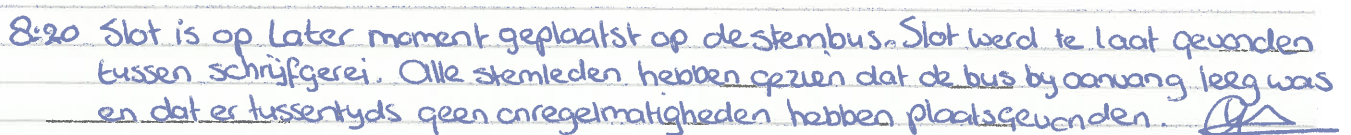 8:20 Slot is op Later moment geplaatst op de stembus. Slot werd te laat gevonden
tussen schrijfgerei. Alle stemleden hebben gezien dat de bus by aanvang leeg was
en dat er tussentyds geen onregelmatigheden hebben plaatsgevonden.